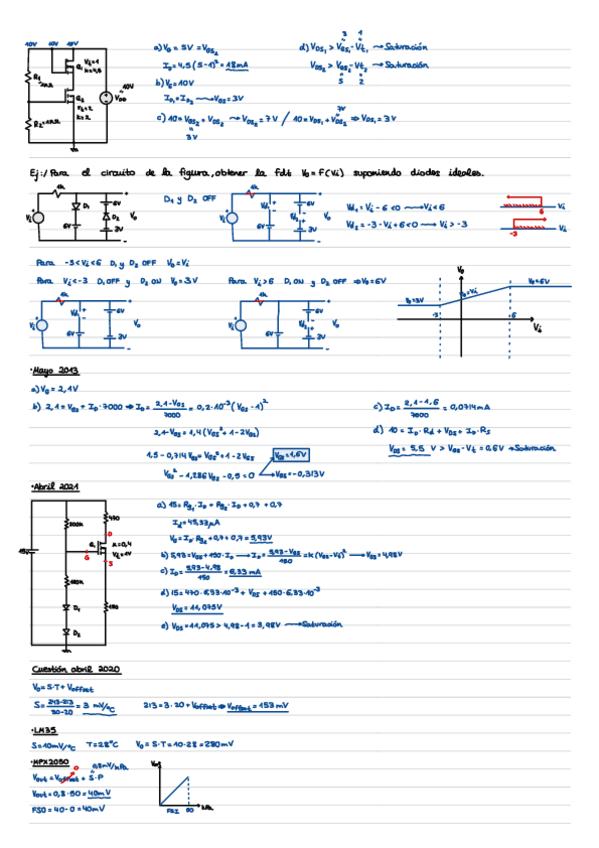 10V 10V 10V
Vt=1
Q1
R1
Q2
Vt=2
K=2
R2=1MΩ
10V
VDD
a) VG = 5V = VGS2
ID = 4,5(5-1)² = 18mA
b) VG = 10V
ID1 = ID2 → VGS = 3V
c) 10 = VGS2 + VDS2 → VDS = 7V / 10 = VDS1 + VDS2 ⇒ VDS1 = 3V
3V
7V
3 1
d) VDS1 > VGS1 - Vt1 → Saturación
VDS2 > VGS2 - Vt2 → Saturación
5 2
Ej:/ Para el circuito de la figura, obtener la fdt V0 = f(Vi) suponiendo diodos ideales.
1k
Vi
D1
6V
6V
D2
3V
V0
D1 y D2 OFF
1k
Vi
Vd1
6V
6V
Vd2
3V
V0
Vd1 = Vi - 6 < 0 → Vi < 6
Vd2 = -3 - Vi + 6 < 0 → Vi > -3
6 Vi
-3 Vi
Para -3 < Vi < 6 D1 y D2 OFF V0 = Vi
Para Vi < -3 D1 OFF y D2 ON V0 = 3V
Para Vi > 6 D1 ON y D2 OFF ⇒ V0 = 6V
1k
Vi
Vd1
6V
6V
3V
V0
1k
Vi
6V
6V
Vd2
3V
V0
V0
V0=3V
V0=Vi
V0=6V
-3
-6
Vi
·Mayo 2013
a) VG = 2,1V
b) 2,1 = VGS + ID · 7000 ⇒ ID = 2,1-VGS / 7000 = 0,2·10⁻³ (VGS - 1)²
2,1 - VGS = 1,4 (VGS² + 1 - 2VGS)
1,5 - 0,714VGS = VGS² + 1 - 2VGS
VGS = 1,6V
VGS² - 1,286VGS - 0,5 = 0
VGS = -0,313V
c) ID = 2,1-1,6 / 7000 = 0,0714mA
d) 10 = ID · Rd + VDS + ID · RS
VDS = 5,5 V > VGS - Vt = 0,6V → Saturación
·Abril 2021
15V
470
D
Q1
K=0,4
Vt=1V
G
S
D1
150
D2
a) 15 = Rg1 · ID + Rg2 · ID + 0,7 + 0,7
Id = 45,33μA
VG = ID · Rg2 + 0,7 + 0,7 = 5,93V
b) 5,93 = VGS + 150 · ID → ID = 5,93-VGS / 150 = K(VGS - Vt)² → VGS = 4,98V
c) ID = 5,93-4,98 / 150 = 6,33 mA
d) 15 = 470 · 6,33·10⁻³ + VDS + 150 · 6,33·10⁻³
VDS = 11,075V
e) VDS = 11,075 > 4,98 - 1 = 3,98V → Saturación
Cuestión abril 2020
V0 = S·T + Voffset
S = 243-213 / 30-20 = 3 mV/ºC
213 = 3·20 + Voffset ⇒ Voffset = 153mV
·LM35
S = 10mV/ºC T = 28ºC V0 = S·T = 10·28 = 280mV
·MPX2050
0 0,8mV/kPa
Vout = Voffset + S·P
Vout = 0,8·50 = 40mV
FSO = 40 - 0 = 40mV
Vout
FSI 50 kPa